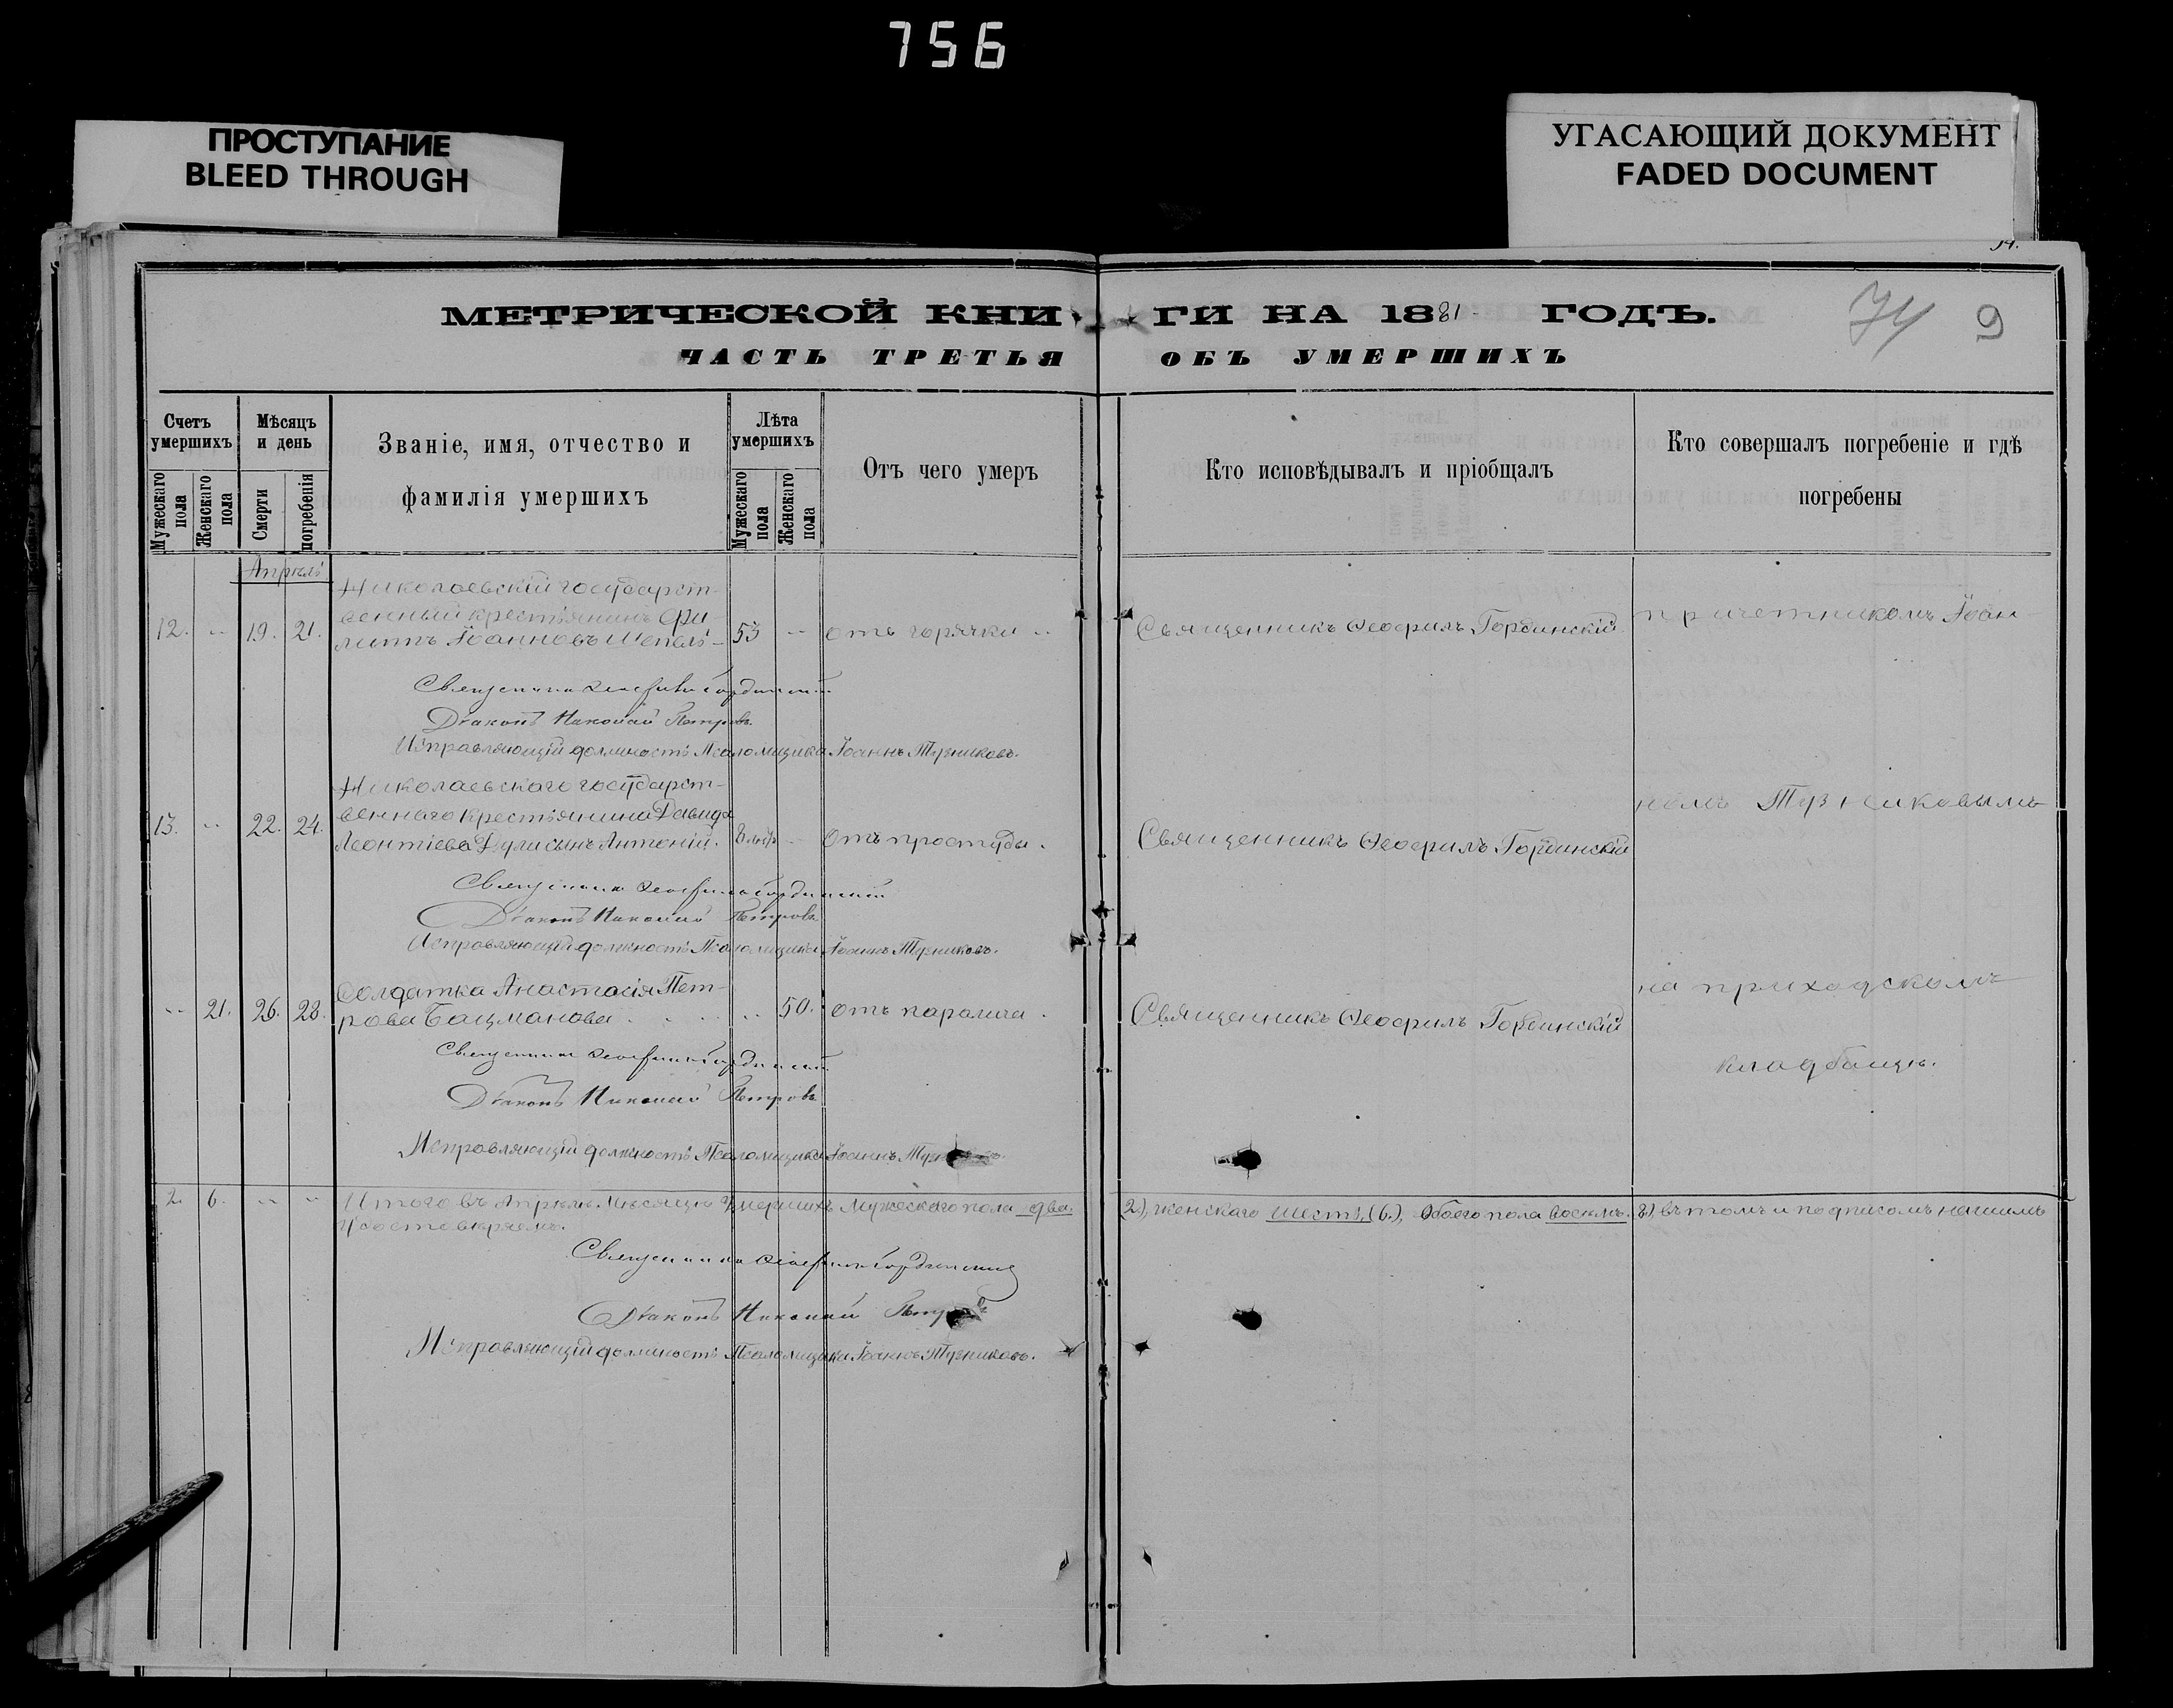 756
ПРОСТУПАНИЕ
BLEED THROUGH
УГАСАЮЩИЙ ДОКУМЕНТ
FADED DOCUMENT
МЕТРИЧЕСКОЙ КНИГИ НА 1881 ГОДЪ.
74 9
ЧАСТЬ ТРЕТЬЯ ОБЪ УМЕРШИХЪ
Счетъ умершихъ
Мужескаго пола
Женскаго пола
Мѣсяцъ и день
Смерти
погребенія
Званіе, имя, отчество и
фамилія умершихъ
Лѣта умершихъ
Мужескаго пола
Женскаго пола
Отъ чего умеръ
Кто исповѣдывалъ и пріобщалъ
Кто совершалъ погребеніе и гдѣ
погребены
Апрѣль
Николаевскій государст-
венный крестьянинъ Фи-
12. " 19. 21. липпъ Іоанновъ Шепель 53 " отъ горячки " Священникъ Ѳеофилъ Гординскій причетникомъ Іоан-
Священникъ Ѳеофилъ Гординскій
Діаконъ Николай Петровъ
Исправляющій должность Псаломщика Іоаннъ Тузниковъ.
Николаевскаго государст-
веннаго крестьянина Давида номъ Тузниковымъ
13. " 22. 24. Леонтіева Дули сынъ Антоній. " Отъ простуды. Священникъ Ѳеофилъ Гординскій
Священникъ Ѳеофилъ Гординскій
Діаконъ Николай Петровъ
Исправляющій должность Псаломщика Іоаннъ Тузниковъ.
Солдатка Анастасія Пет- на приходскомъ
" 21. 26. 28. рова Бацманова " 50. отъ паралича. Священникъ Ѳеофилъ Гординскій
Священникъ Ѳеофилъ Гординскій кладбищѣ.
Діаконъ Николай Петровъ
Исправляющій должность Псаломщика Іоаннъ
2. 6. " " Итого въ Апрѣлѣ мѣсяцѣ умершихъ мужескаго пола два. 2), женскаго шесть, (6.), Обоего пола восемь. 8), въ томъ и подписомъ нашимъ
удостовѣряемъ.
Священникъ Ѳеофилъ Гординскій
Діаконъ Николай Петровъ
Исправляющій должность Псаломщика Іоаннъ Тузниковъ.